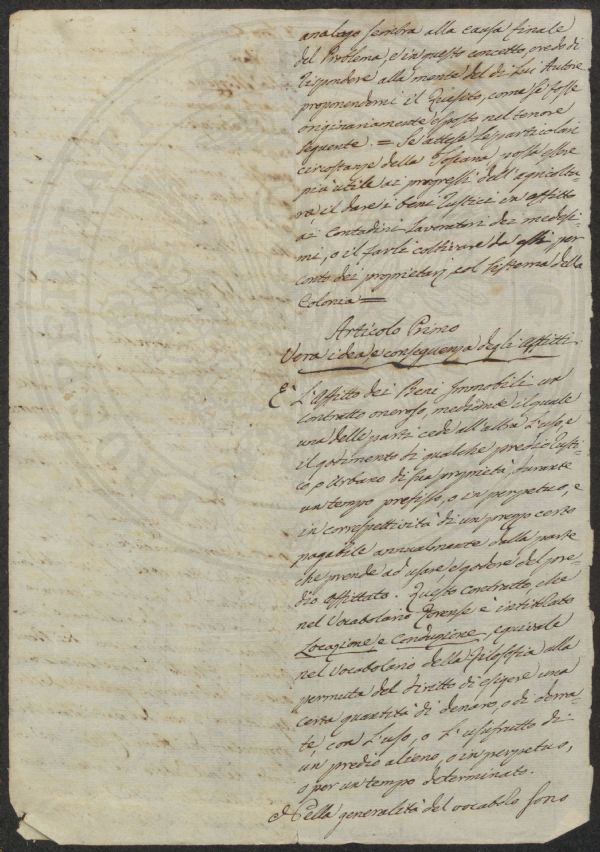 analogo sembra alla causa finale
del Problema, e in questo concetto, credo di
rispondere alla mente del di Lui Autore
proponendomi il Quesito, come se fosse
originariamente esposto nel tenore
seguente = Se attese le particolari
circostanze della Toscana, possa essere
più utile ai progressi dell'agricoltu-
ra il dare i beni rustici in affitto
ai Contadini Lavoratori dei medesi-
mi, o il farli coltivare da essi per
conto dei proprietarj col sistema della
Colonia =
Articolo Primo
Vera idea e conseguenza degli affitti.
È L'affitto dei Beni Immobili un
contratto oneroso, mediante il quale
una delle parti cede all'altra L'uso, e
il godimento di qualche predio rusti-
co, o Urbano di sua proprietà, durante
un tempo prefisso, o in perpetuo, e
in correspettività di un prezzo certo
pagabile annualmente dalla parte
che prende ad usare e godere del pre-
dio affittato. Questo contratto, che
nel Vocabolario Forense è intitolato
Locazione e Conduzione, equivale
nel Vocabolario della Filosofia alla
permuta del diritto di esigere una
certa quantità di denaro, o di derra-
te, con L'uso, o L'usufrutto di
un predio alieno, o in perpetuo,
o per un tempo determinato.
Nella generalità del vocabolo sono